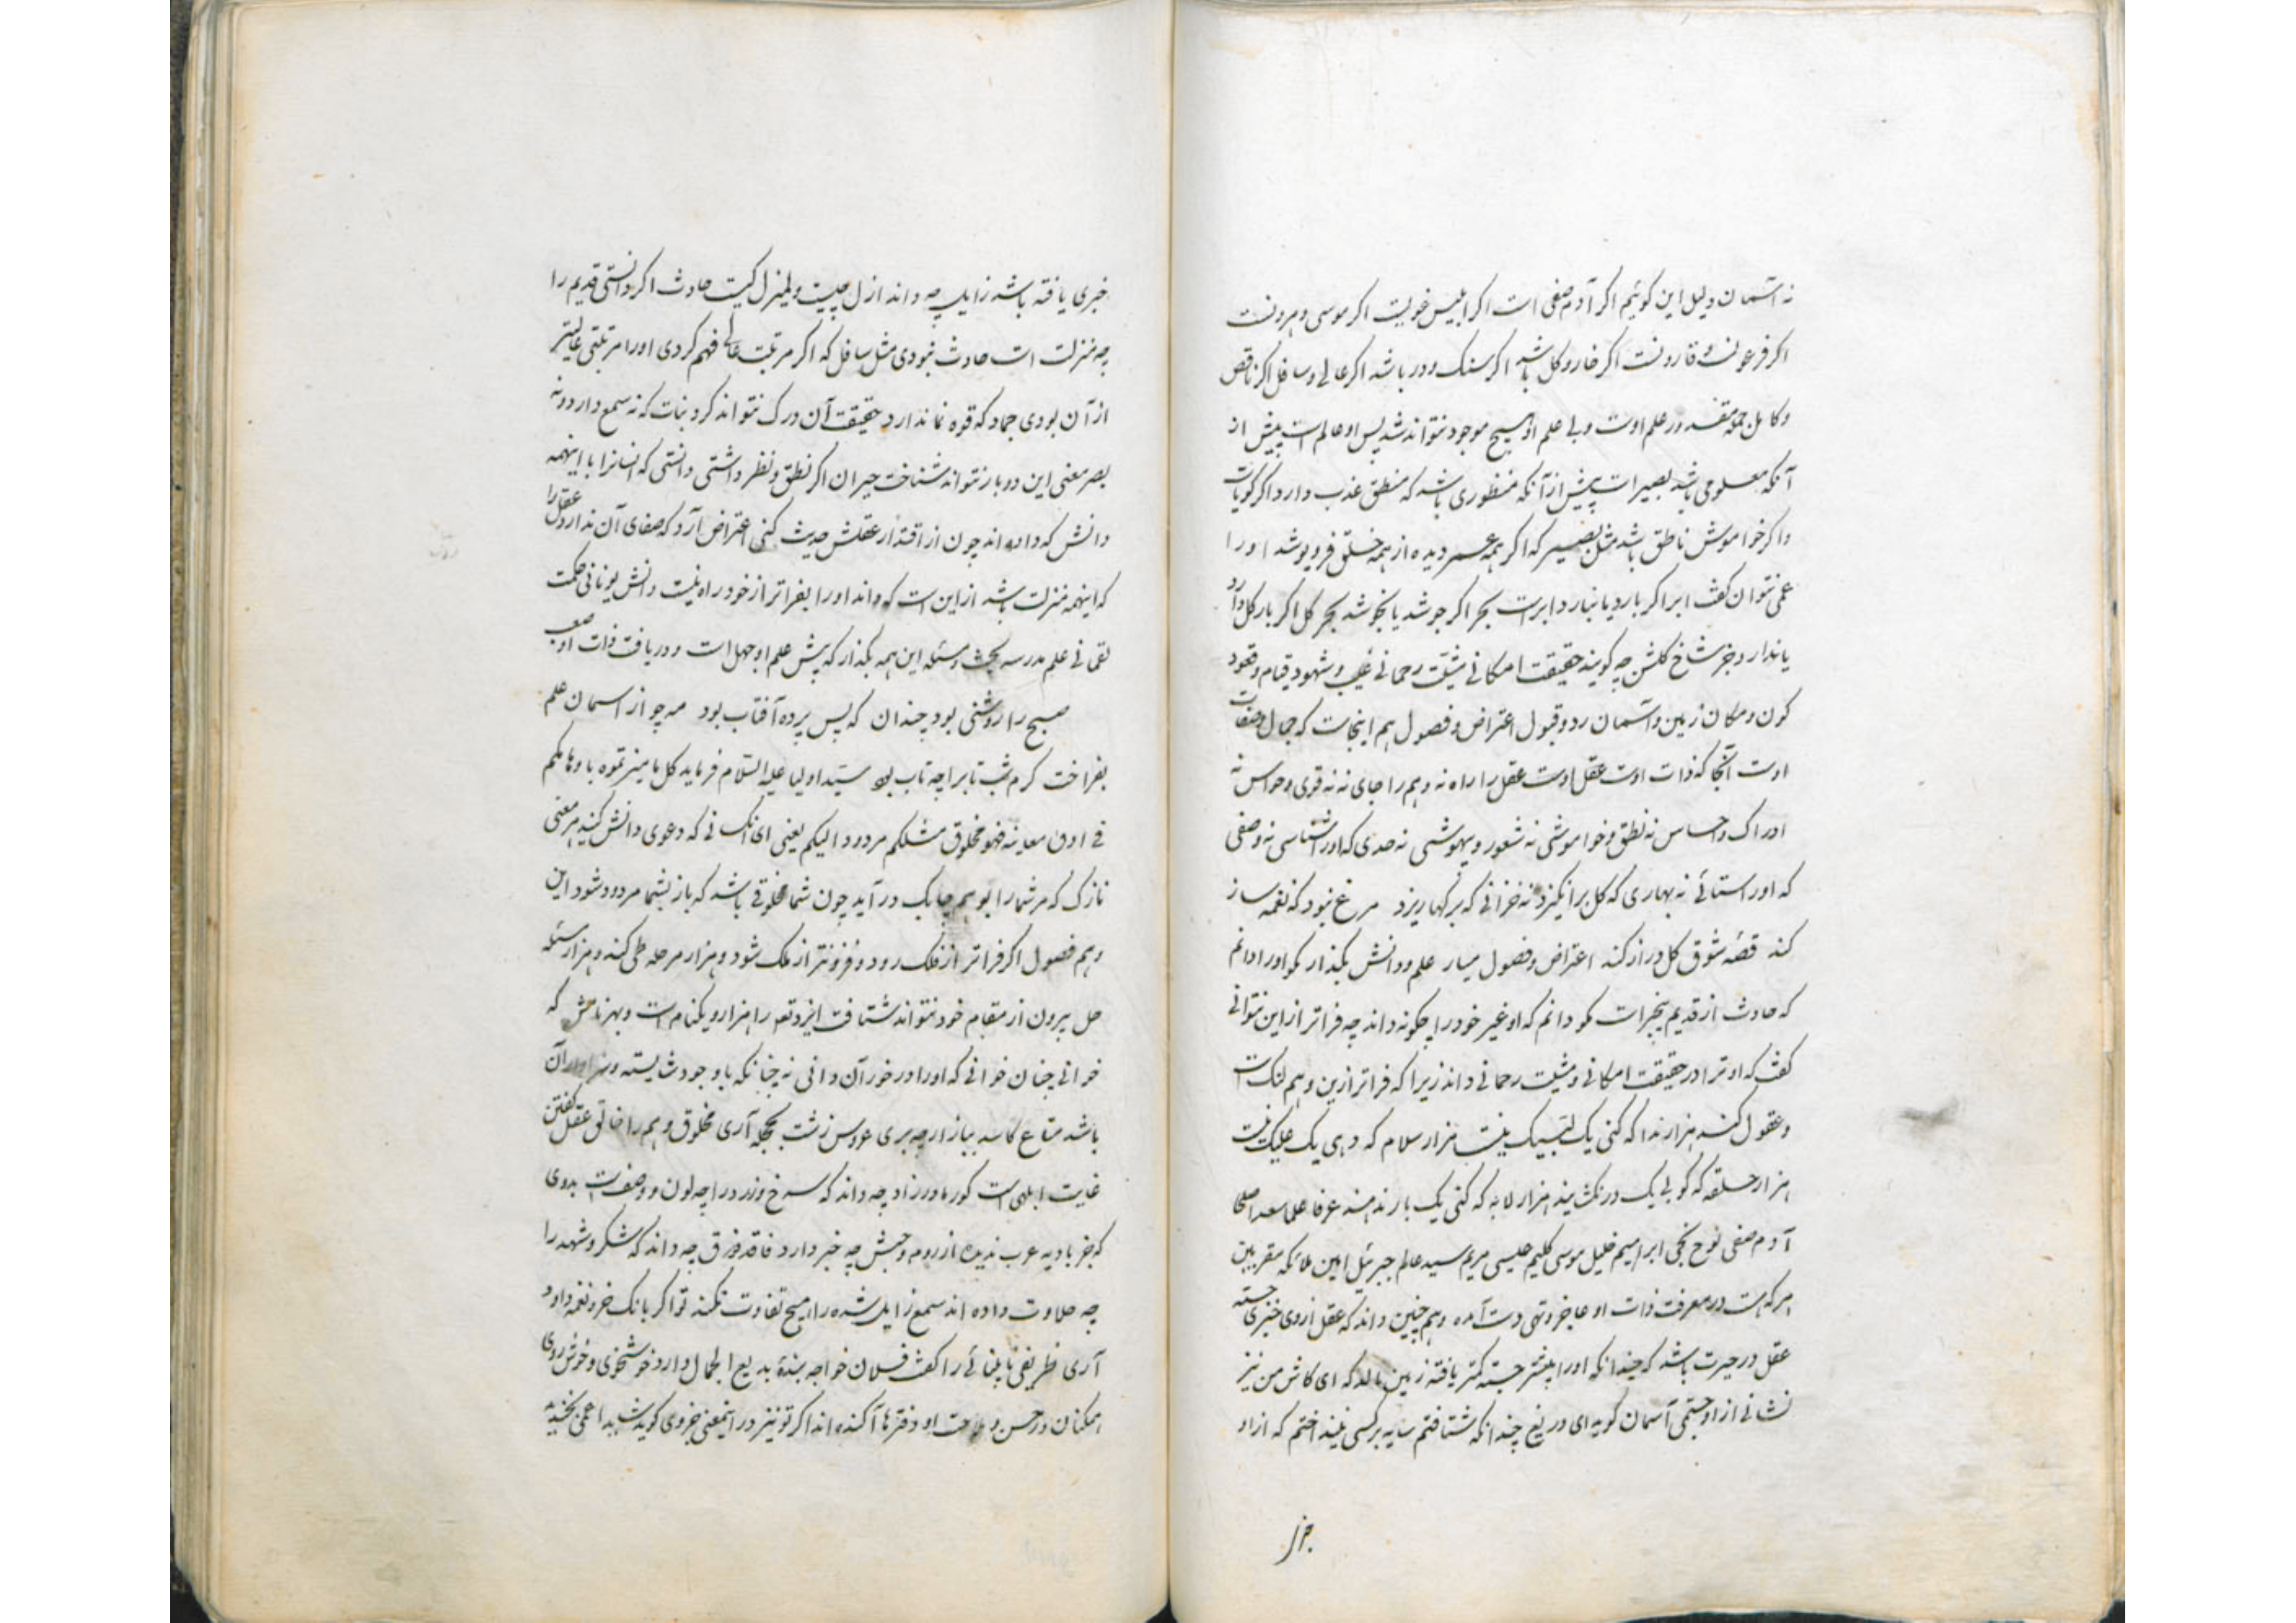 نه آسمان دلیل این کوئیم اکر آدم صفی است اکر ابلیس غویست اکر موسی و هرونست
اکر فرعونست و قارونست اکر خار و کل باشد اکر سنک و در باشد اکر عالی و سافل اکر ناقص
و کامل جمله در علم اوست و بی علم او هیچ موجود نتواند شد پس او عالم است پیش از
آنکه معلومی باشد بصیر است پیش از آنکه منظوری باشد که منطق عذب دارد اکر کویاست
و اکر خواموش ناطق باشد مثل بصیر که اکر همه عمر دیده از همه خلق فروپوشد او را
عمی نتوان کفت ابر اکر بارد یا نبارد ابر است بحر اکر جوشد یا نجوشد بحر کل اکر بار کل دارد
یا ندارد جز شاخ کلشن چه کویند حقیقت امکانی مشیّت رحمانی غیب و شهود قیام و قعود
کون و مکان زمین و آسمان رد و قبول اعتراض و فصول هم اینجاست که جمال و صفات
اوست آنجا که ذات اوست عقل اوست عقل را راه نه وهم را جای نه نه قوی و حواس نه
ادراک و احساس نه نطق و خواموشی نه شعور و بیهوشی نه حدی که او را شناسی نه وصفی
که او را ستائی نه بهاری که کل برانکیزد نه خزانی که برکها ریزد مرغ نبود که نغمه ساز
کند قصّه شوق کل دراز کند اعتراض و فصول میار علم و دانش بکذار مکو او را دانم
که حادث از قدیم بیخبر است مکو دانم که او غیر خود را چکونه داند چه فراتر از این نتوانی
کفت که او ترا در حقیقت امکانی و مشیت رحمانی داند زیرا که فراتر ازین وهم لنک است
و عقول کند هزار ندا که کنی یک لبّیک نیست هزار سلام که دهی یک علیک نیست
هزار حلقه که کوبی یک در نکشایند هزار لابه که کنی یک بار ندهند عرفا علما سعدا صلحا
آدم صفی نوح نجی ابراهیم خلیل موسی کلیم عیسی مریم سید عالم جبرئیل امین ملائکه مقربین
هر که هست در معرفت ذات او عاجز و تهی دست آمده وهم چنین داند که عقل از وی خبری جسته
عقل در حیرت باشد که چندانکه او را بیشتر جسته کمتر یافته زمین نالد که ای کاش من نیز
نشانی از او جستمی آسمان کوید ای دریغ چندانکه شتافتم سایه بر کسی نینداختم که از او
خبری یافته باشد زایل چه داند ازل چیست و لمیزل کیست حادث اکر دانستی قدیم را
چه منزلت است حادث نبودی مثل سافل که اکر مرتبت عالی فهم کردی او را مرتبتی عالیتر
از آن بودی جماد که قوه نما ندارد حقیقت آن درک نتواند کرد نبات که نه سمع دارد و نه
بصر معنی این دو باز نتواند شناخت حیران اکر نطق و نظر داشتی دانستی که انسانرا با اینهمه
دانش که داده اند چون از اقتدار عقلش حدیث کنی اعتراض آرد که صفای آن ندارد عقل را
که اینهمه منزلت باشد از این است که داند او را بفراتر از خود راه نیست دانش یونانی حکمت
لقمانی علم مدرسه بحث و مسئله این همه بکذار که پیش علم او جهل است و دریافت ذات او صعب
صبح را روشنی بود چندان که پس پرده آفتاب بود مه چو از اسمان علم
بفراخت کرم شب تاب را چه تاب بود سیّد اولیا علیه السّلام فرماید کل ما میزتموه باوهامکم
فی ادق معانیه فهو مخلوق مثلکم مردود الیکم یعنی ای انک نی که دعوی دانش کنید هر معنی
نازک که مر شما را بوهم چابک در آید چون شما مخلوقی باشد که باز بشما مردود شود این
وهم فصول اکر فراتر از فلک رود و فزونتر از ملک شود و هزار مرحله طی کند و هزار مسئله
حل بیرون از مقام خود نتواند شتافت ایزد تعالی را هزار و یکنام است و بهر نامش که
خوانی چنان خوانی که او را در خور آن دانی نه چنانکه باوجود شایسته و سزاوار آن
باشد متاع کاسد ببازار چه بری عروس زشت بحجله آری مخلوق وهم را خالق عقل کفتن
غایت ابلهی است کور مادرزاد چه داند که سرخ و زرد را چه لون و وصفست بدوی
که جز بادیه عرب ندیده از روم و حبش چه خبر دارد فاقد ذوق چه داند که شکر و شهد را
چه حلاوت داده اند سمع زایل شده را هیچ تفاوت نکند تو اکر بانک خر و نغمه داود
آری ظریفی نابینائی را کفت فلان خواجه بندهٔ بدیع الجمال دارد خوشخوی و خوش روی
همکنان در حسن و ملاحت او دفترها آکنده اند اکر تو نیز در اینمعنی جزوی کوئی شاید اعمی بخندید
جزار